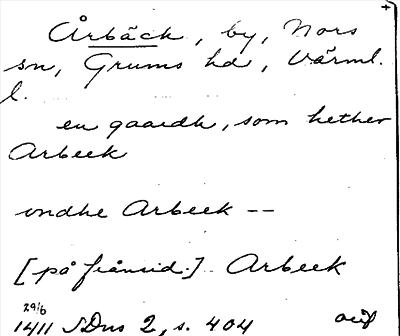 Årbäck, by, Nors
sn, Grums hd, Värml.
l.
en gaardh, som hether
Arbeek
vndhe Arbeek --
[på frånsid.] Arbeek
29/6
1411 SDns 2, s. 404